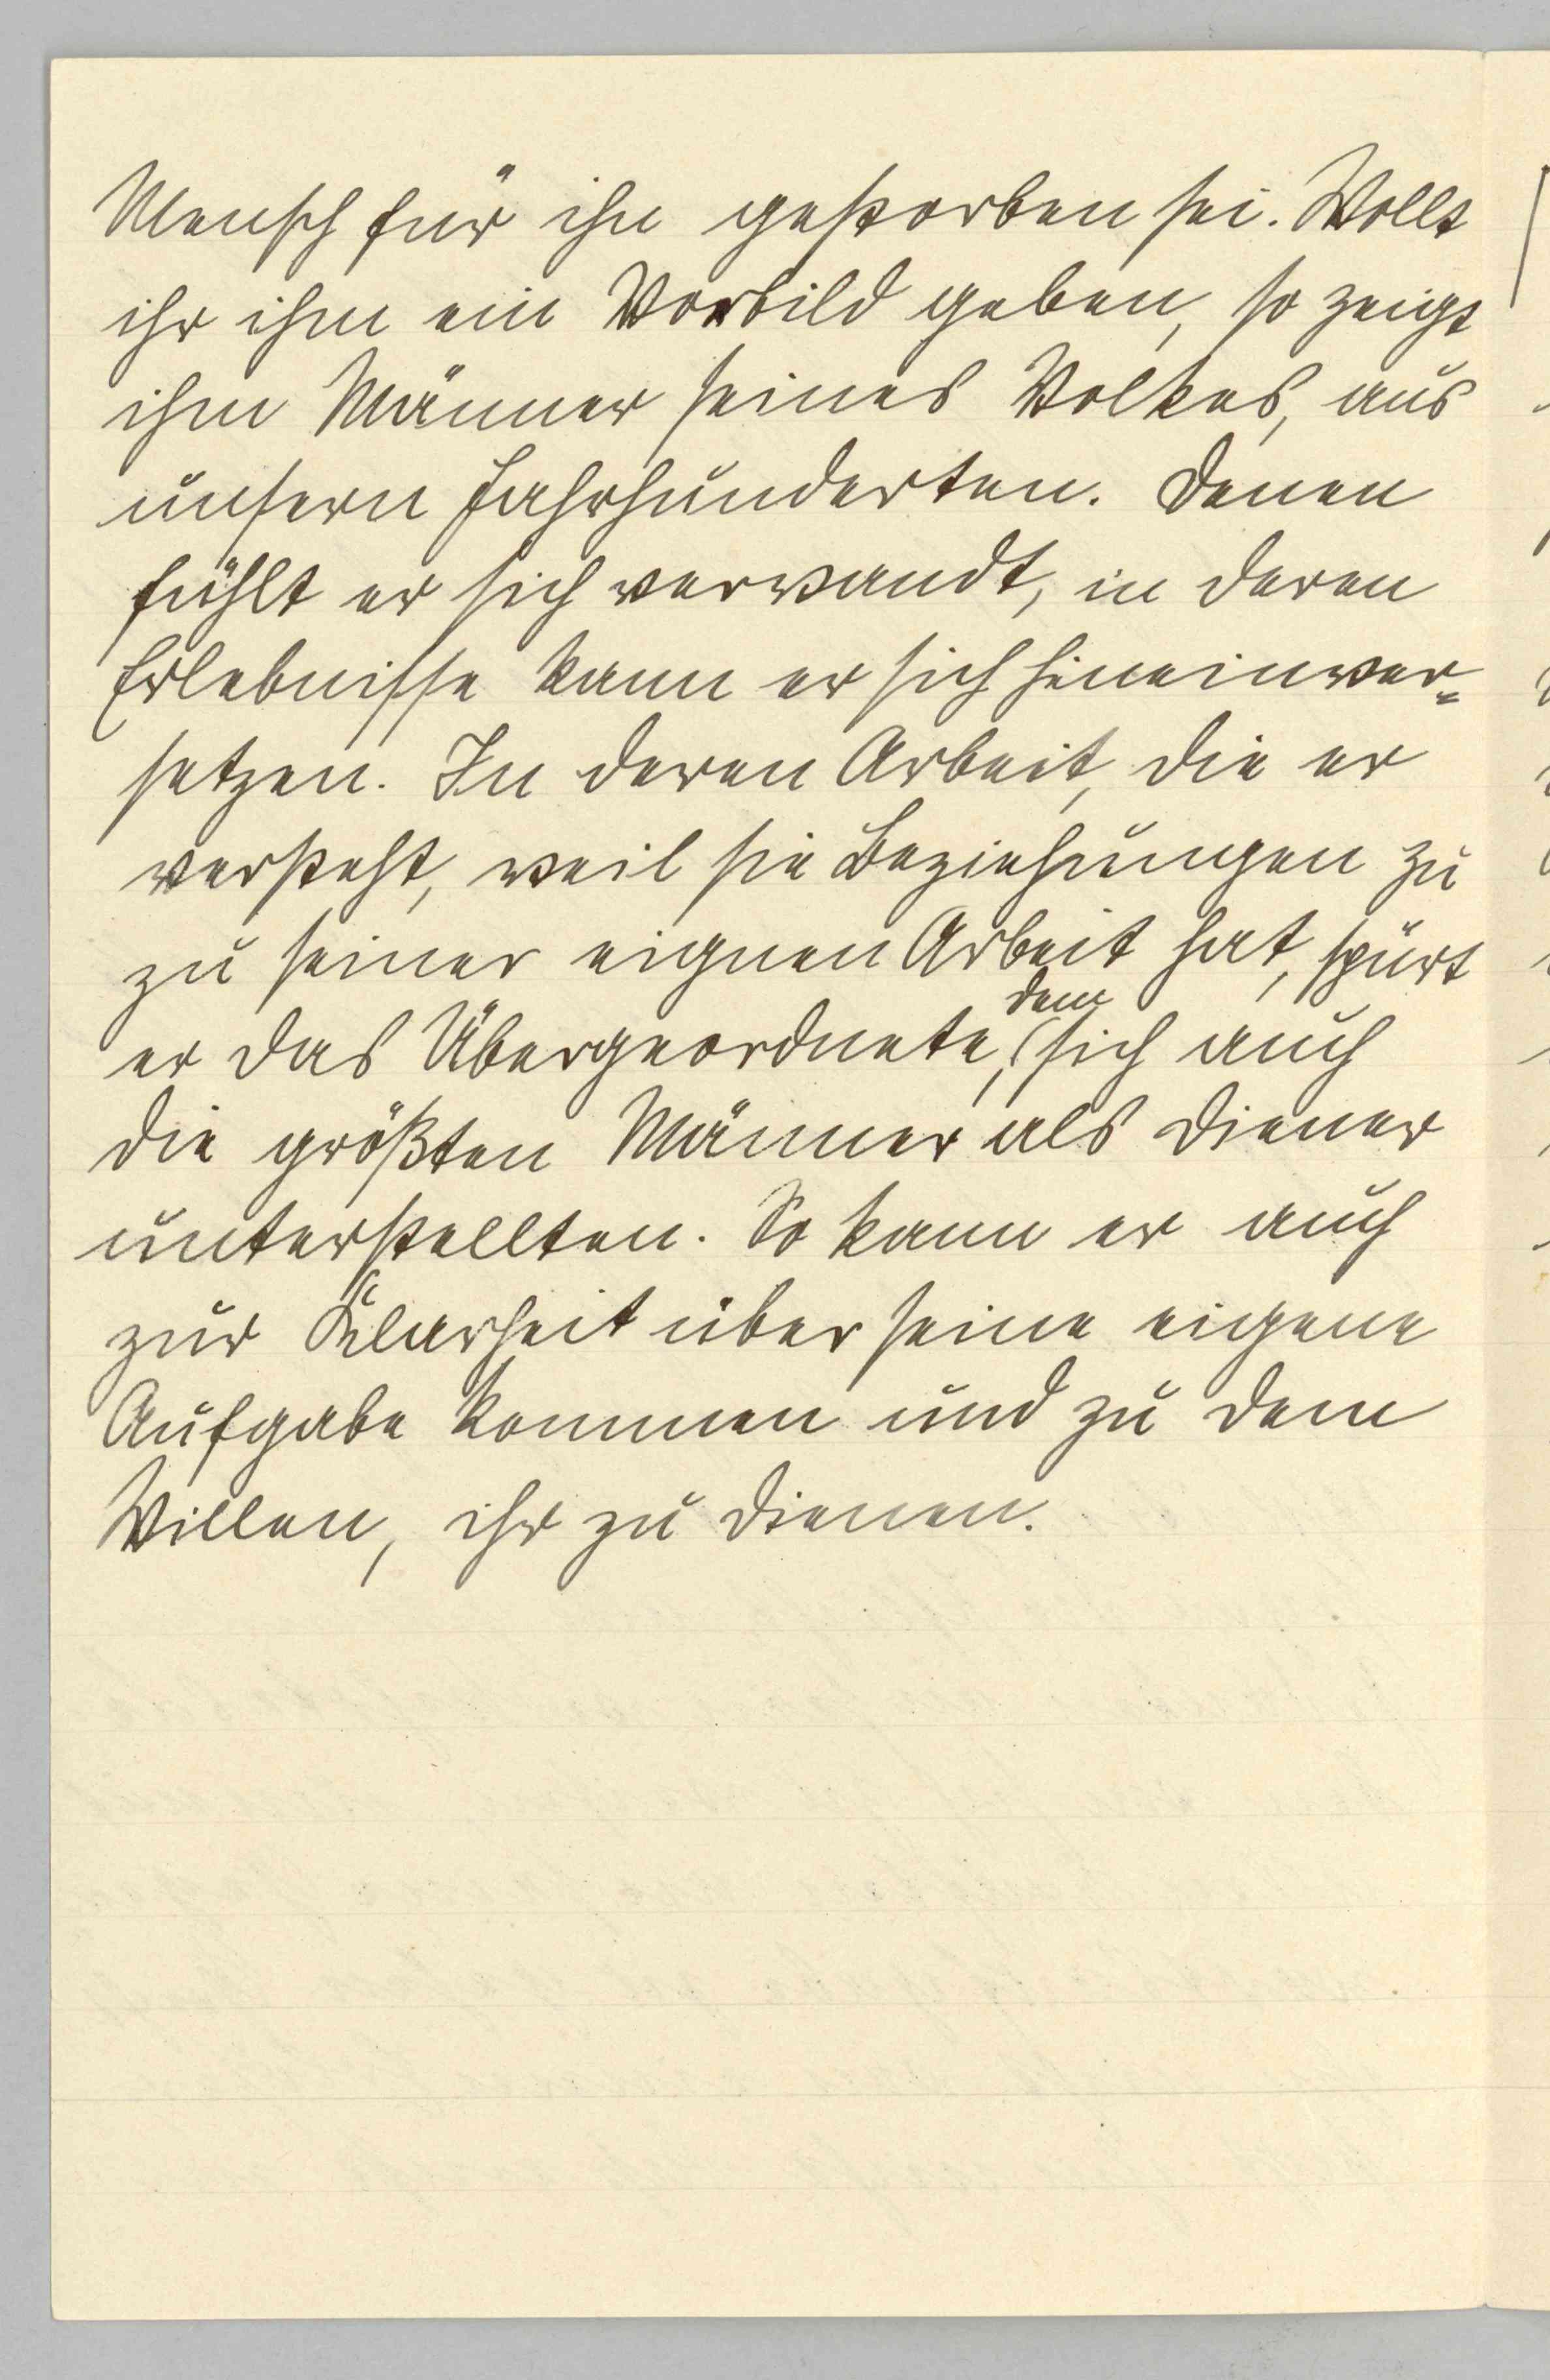 Mensch für ihn gestorben sei. Wollt
ihr ihm ein Vorbild geben, so zeigt
ihm Männer seines Volkes, aus
unsern Jahrhunderten. Denen
fühlt er sich verwandt, in deren
Erlebnisse kann er sich hineinver=
setzen. In deren Arbeit, die er
versteht, weil sie Beziehungen zu
zu seiner eignen Arbeit hat, spürt
er das Übergeordnete, dem sich auch
die größten Männer als Diener
unterstellten. So kann er auch
zur Klarheit über seine eigene
Aufgabe kommen und zu dem
Willen, ihr zu dienen.